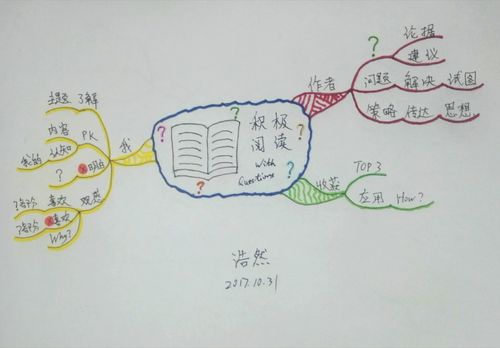 积极
阅读
With
Questions
作者
论据
建议
问题 解决 试图
策略 传达 思想
收获
TOP 3
应用 How?
我
主题 了解
内容 PK
我的 认知
? 明白
喜欢 观范
喜欢
Why?
浩然
2017.10.31